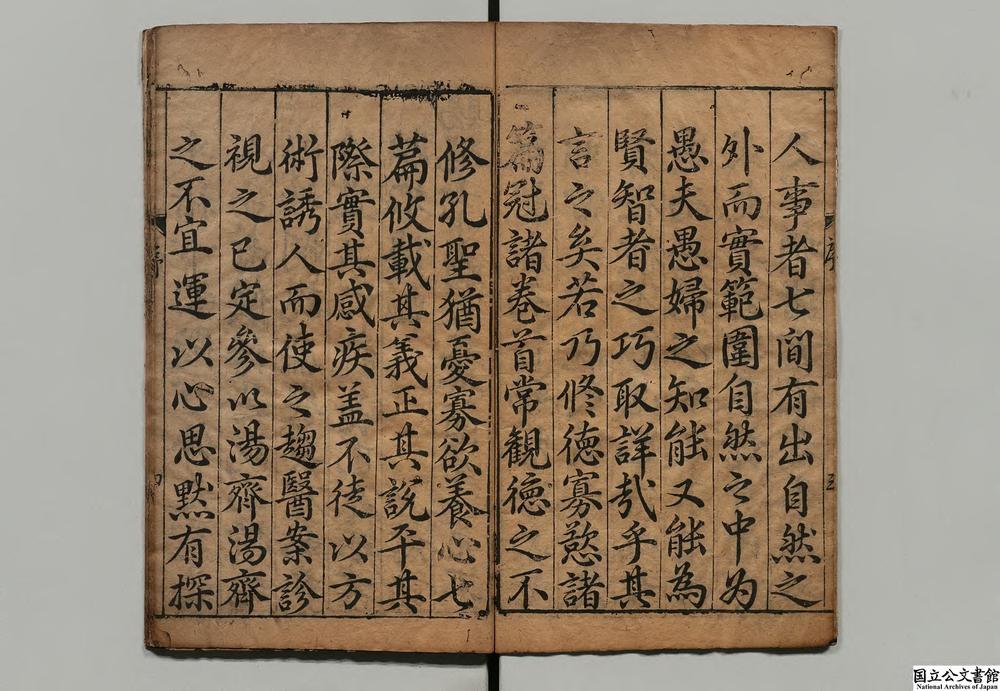 人事者七間有出自然之
外而實範圍自然之中为
愚夫愚婦之知能又能為
賢智者之巧取詳哉乎其
言之矣若乃修德寡慾諸
篇冠諸卷首常觀德之不
修孔聖猶憂寡欲養心七
篇攸載其義正其說平其
際實其感疾盖不徒以方
術誘人而使之趨醫案診
視之已定參以湯齊湯齊
之不宜運以心思默有探
国立公文書館
National Archives of Japan